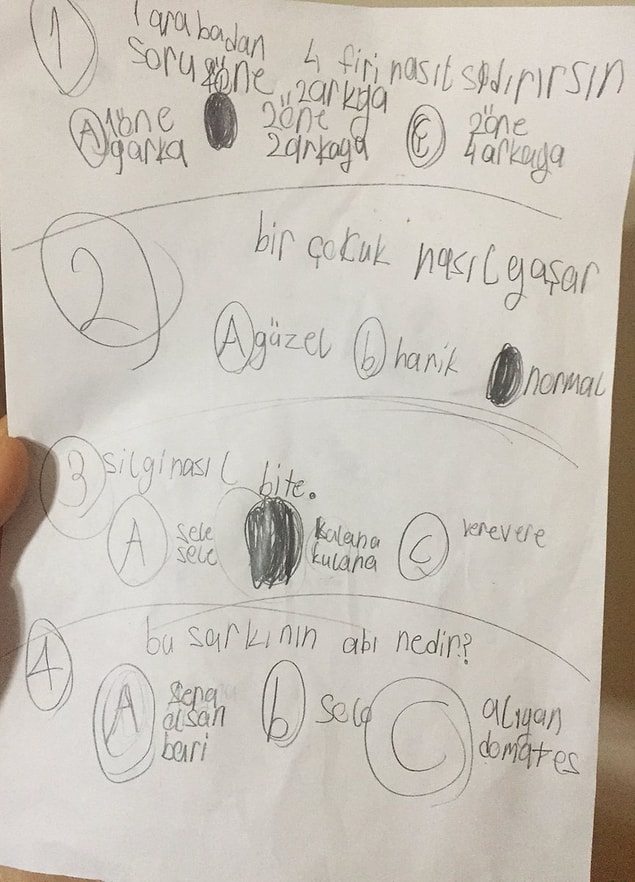 1
1 arabadan 4 firi nasıl sıdırırsın
soru
2arkya
A 1öne garka 2öne 2arkaya C 2öne 4arkaya
2
bir çokuk nasıl yaşar
A güzel b harik normal
3 silgi nasıl bite.
A sele sele kulana kulana C verevere
4
bu sarkının abı nedir?
A sena olsan bari b sele C alıyan domates